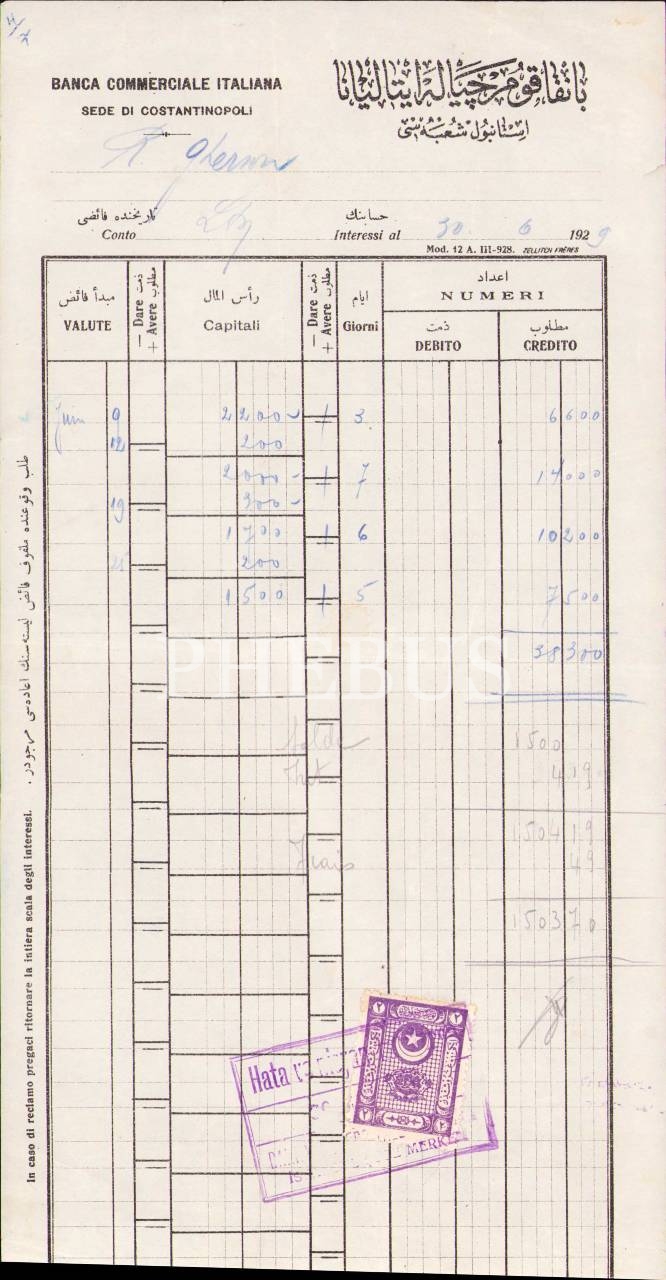 BANCA COMMERCIALE ITALIANA
SEDE DI COSTANTINOPOLI
بانقا قومرچياله ايتاليانا
استانبول شعبه سى
تاريخنده فائضى
حسابنك
Conto
Interessi al 30 6 1929
Mod. 12 A. III-928. ZELLITCH FRÈRES
مبدأ فائض
VALUTE
ذمت
مطلوب
— Dare
+ Avere
رأس المال
Capitali
ذمت
مطلوب
— Dare
+ Avere
ايام
Giorni
اعداد
NUMERI
ذمت
DEBITO
مطلوب
CREDITO
Juin 9 2200 - + 3 6600
12 200
2000 - + 7 14000
19 300 -
1700 + 6 10200
25 200
1500 + 5 7500
38300
PHEBUS
Solde 1500
Int 4.19
1504 19
Frais 49
1503 70
طلب وقوعنده ملفوف فائض ليسته سنك اعاده سى مرجودر .
In caso di reclamo pregaci ritornare la intiera scala degli interessi.
Hata
MERKEZ